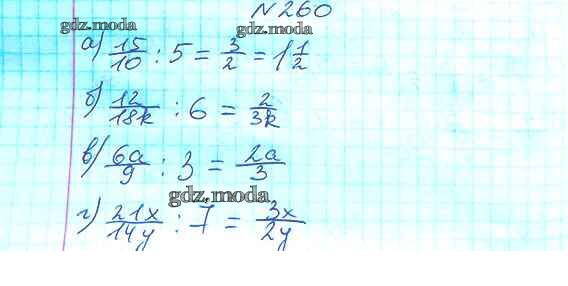 № 260
gdz.moda gdz.moda
а) 15/10 : 5 = 3/2 = 1 1/2
б) 12/18k : 6 = 2/3k
в) 6a/9 : 3 = 2a/3
gdz.moda
г) 21x/14y : 7 = 3x/2y